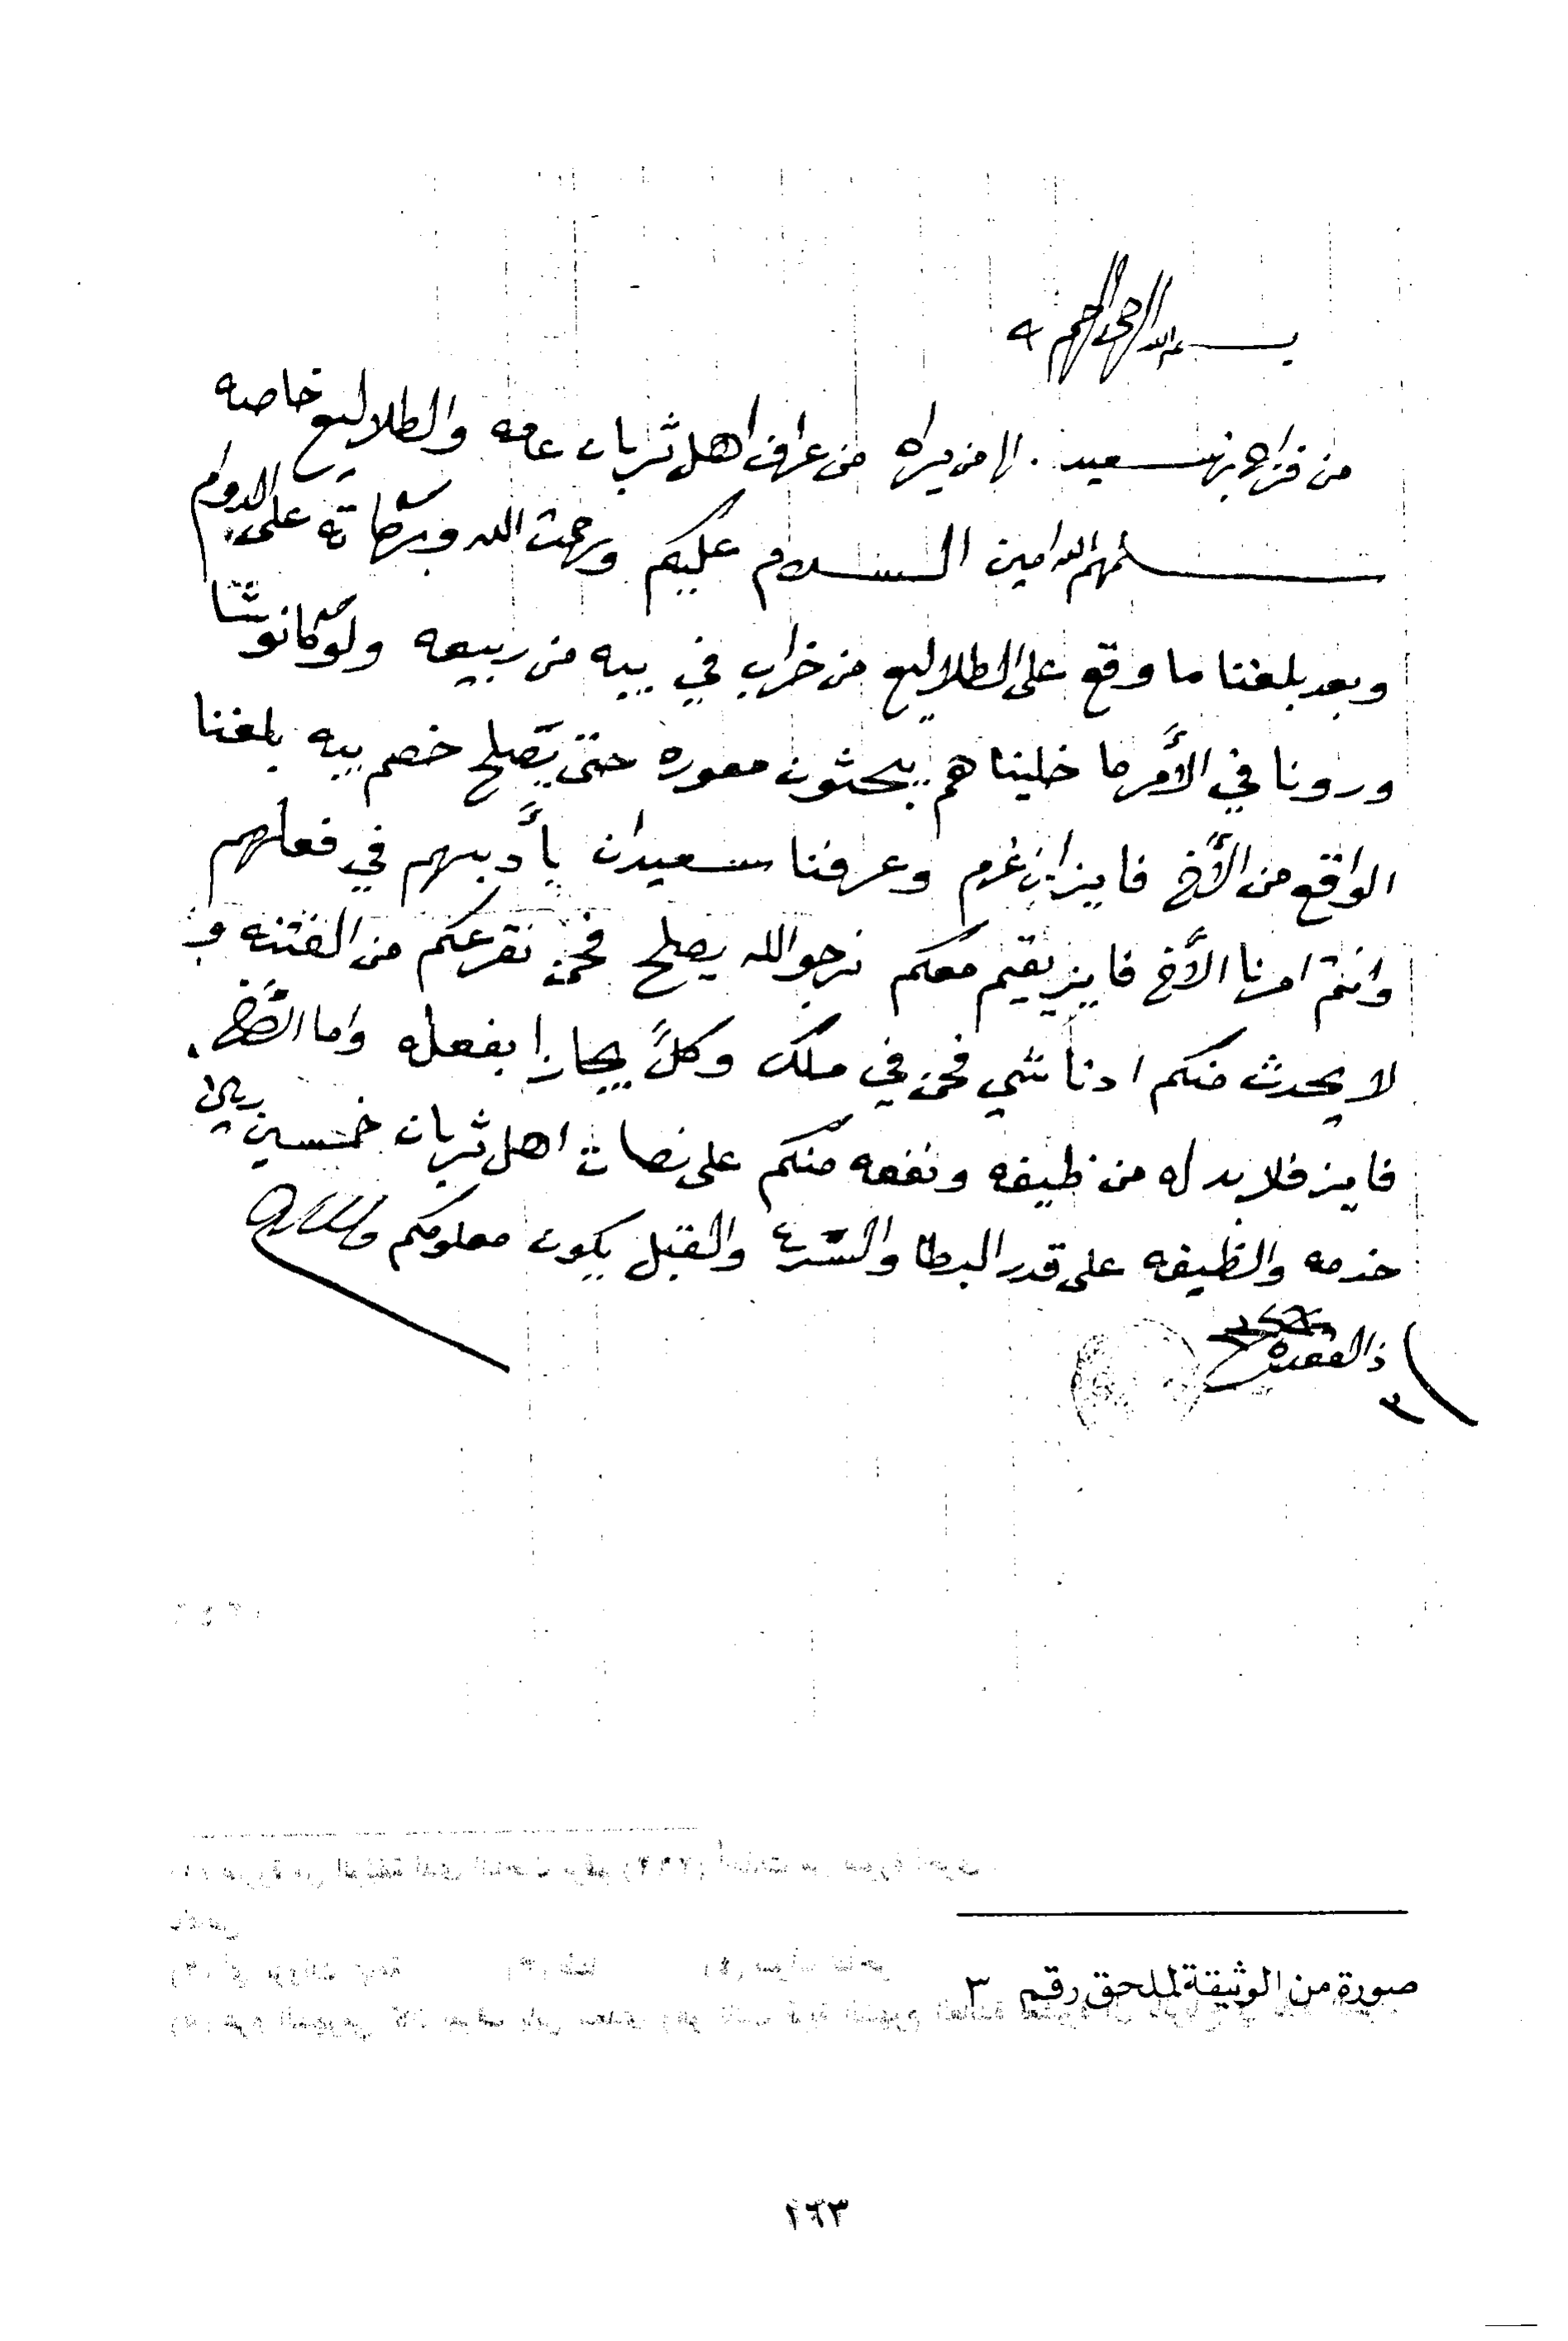 بسم الله الرحمن الرحيم
من فراج بن سعيد . الا من يراه من عراف اهل ثربان عامه والطلاليع خاصه
سلمهم الله امين السلام عليكم ورحمت الله وبركاته على الدوام
وبعد بلغنا ما وقع على الطلاليع من خراب في بيه من ربيعه ولو كانو
ورونا في الأمر ما خليناهم يبحثون معوره حتى يصلح خصم بيه بلغنا
الواقع من الأخ فايز ابن غرم وعرفنا سعيدان يأدبهم في فعلهم
وانتم امرنا الأخ فايز يقيم معكم نرجو الله يصلح فحن نقرعكم من الفتنه و
لا يحدث منكم ادنا شي فحن في ملك وكلً يجازا بفعله واما الأخ
فايز فلا بد له من ظيفه ونفعه منكم على نصات اهل ثربان خمسين ريال
خدمه والظيفه على قدر البطا والسرع والقبل يكون معلومكم والسلام
ذالقعده
٣
صورة من الوثيقة لملحق رقم ٣
١٦٣